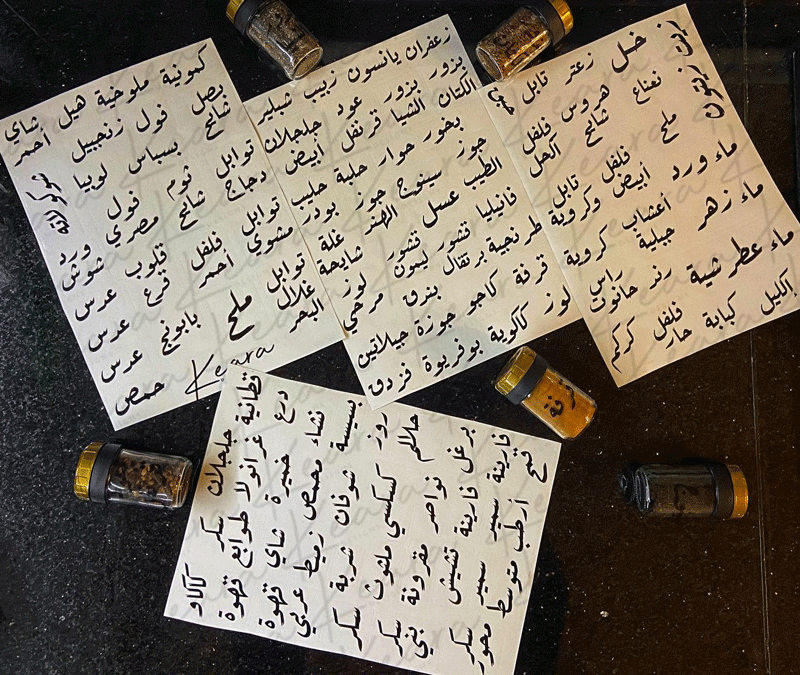 كمونية ملوخية هيل شاي
بصل فول زنجبيل أحمر
شائح بسباس لوبيا
توابل ثوم فول شوكولاتة
دجاج شائح مصري ورد
توابل فلفل قلوب شوش
مشوي أحمر قرع عدس
توابل ملح بابونج عدس
غلال عدس
البحر حمص
Keara
زعفران يانسون زبيب شبلير
بزور بزور عود جلجلان
الكتان الشيا قرنفل أبيض
بخور حوار حلبة حليب
جوز سينوج جوز بودر
الطيب عسل الهند
فانيليا قشور قشور غلة
طرنجية برتقال ليمون لوز شايحة
قرفة كاجو بندق مرحي
لوز كاكوية جوزة جيلاتين
بوفريوة فزدق
زيت زيتون
خل زعتر تابل حوت
نعناع هروس فلفل
شائح أكحل
ماء ورد ملح فلفل تابل
أبيض وكروية
ماء زهر أعشاب كروية
جبلية
ماء عطرشية رند راس
حانوت
إكليل كبابة فلفل كركم
حار
جلجلان سكر كاكاو
قطانية غرانولا طوابع قهوة
درع خميرة شاي قهوة
نشاء محمص زميط عربي
بسيسة شوفان شربة سكر
روز كسكسي ملثوث سكر
حلالم نواصر مقرونة بني
برغل فارينة تشيش سكر
فارينة سميد سميد محور
قمح أرطب متوسط
قرفة